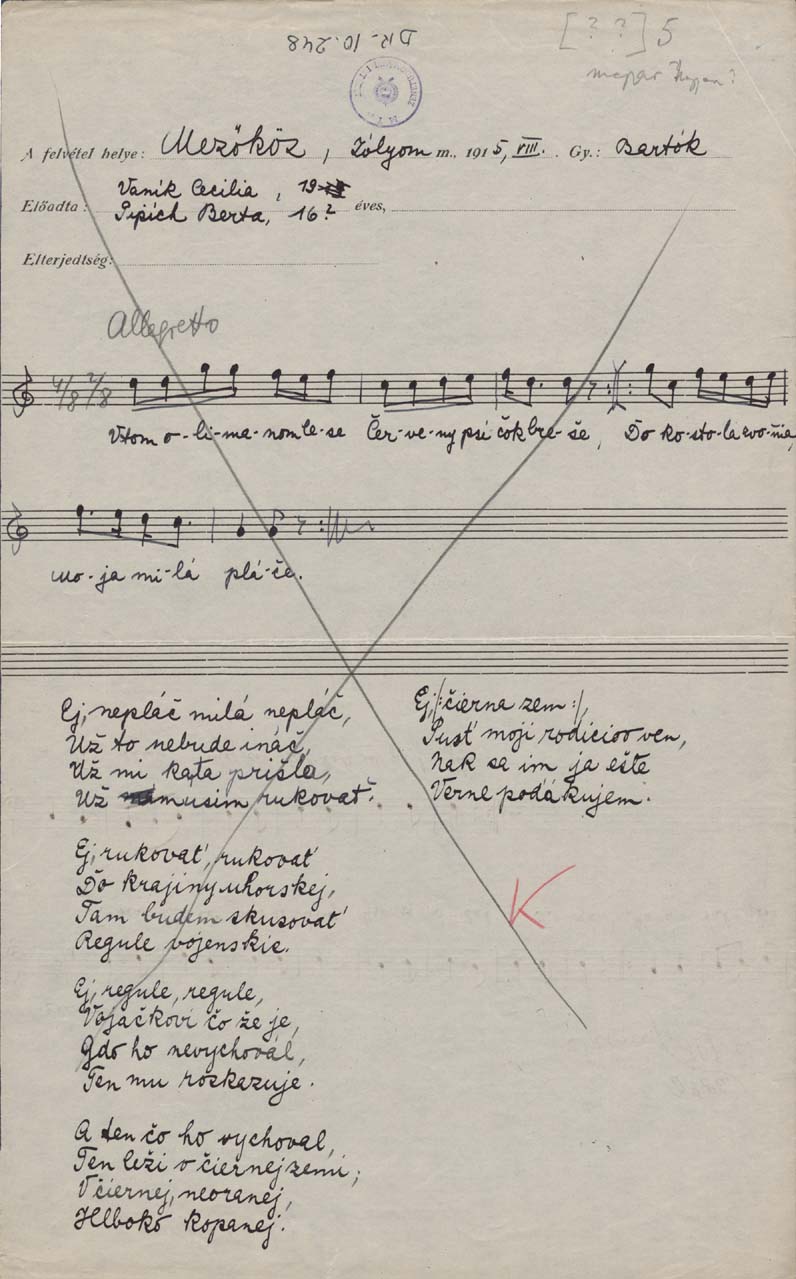 DR-10.248
[? ?] 5
A felvétel helye: Mezőköz, Zólyom m., 1915, VIII. Gy.: Bartók
Előadta: Vaník Cecilia, 19
Pipich Berta, 16? éves,
Elterjedtség:
Allegretto
4/8 3/8
V tom o-li-ma-nom le-se Čer-ve-ny psí čok bre-še, Do ko-sto-la zvo-ňia,
mo-ja mi-lá plá-če.
Ej, neplač milá neplač,
Už to nebude ináč,
Už mi karta prišla,
Už musím rukovať.
Ej, rukovať, rukovať
Do krajiny uhorskej,
Tam budem skusovať
Regule vojenskie.
Ej, regule, regule,
Vojačkovi čo že je,
Gdo ho nevychovál,
Ten mu rozkazuje.
A ten čo ho vychoval,
Ten leži v čiernej zemi;
V čiernej, neoranej,
Hlboko kopanej.
Ej, /: čierna zem :/,
Pusť moji rodiciov ven,
Nak sa im ja ešte
Verne podákujem.
K